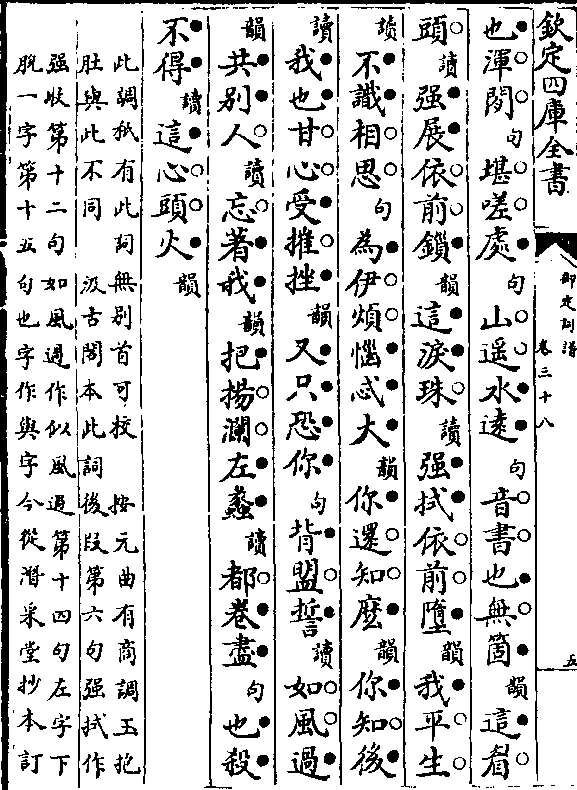 欽定四庫全書
御定詞譜
卷三十八
五
也渾閒句堪嗟處句山遥水遠句音書也無箇韻這眉
頭讀强展依前鎖韻這淚珠讀强拭依前墮韻我平生
讀不識相思句為伊煩惱忒大韻你還知麽韻你知後
讀我也甘心受摧挫韻又只恐你句背盟誓讀如風過
韻共別人讀忘著我韻把揚瀾左蠡讀都卷盡句也殺
不得讀這心頭火韻
此調秖有此詞無別首可挍 按元曲有商調玉抱
肚與此不同 汲古閣本此詞後段第六句强拭作
强收第十二句如風過作似風過第十四句左字下
脫一字第十五句也字作與字今從潛采堂抄本訂